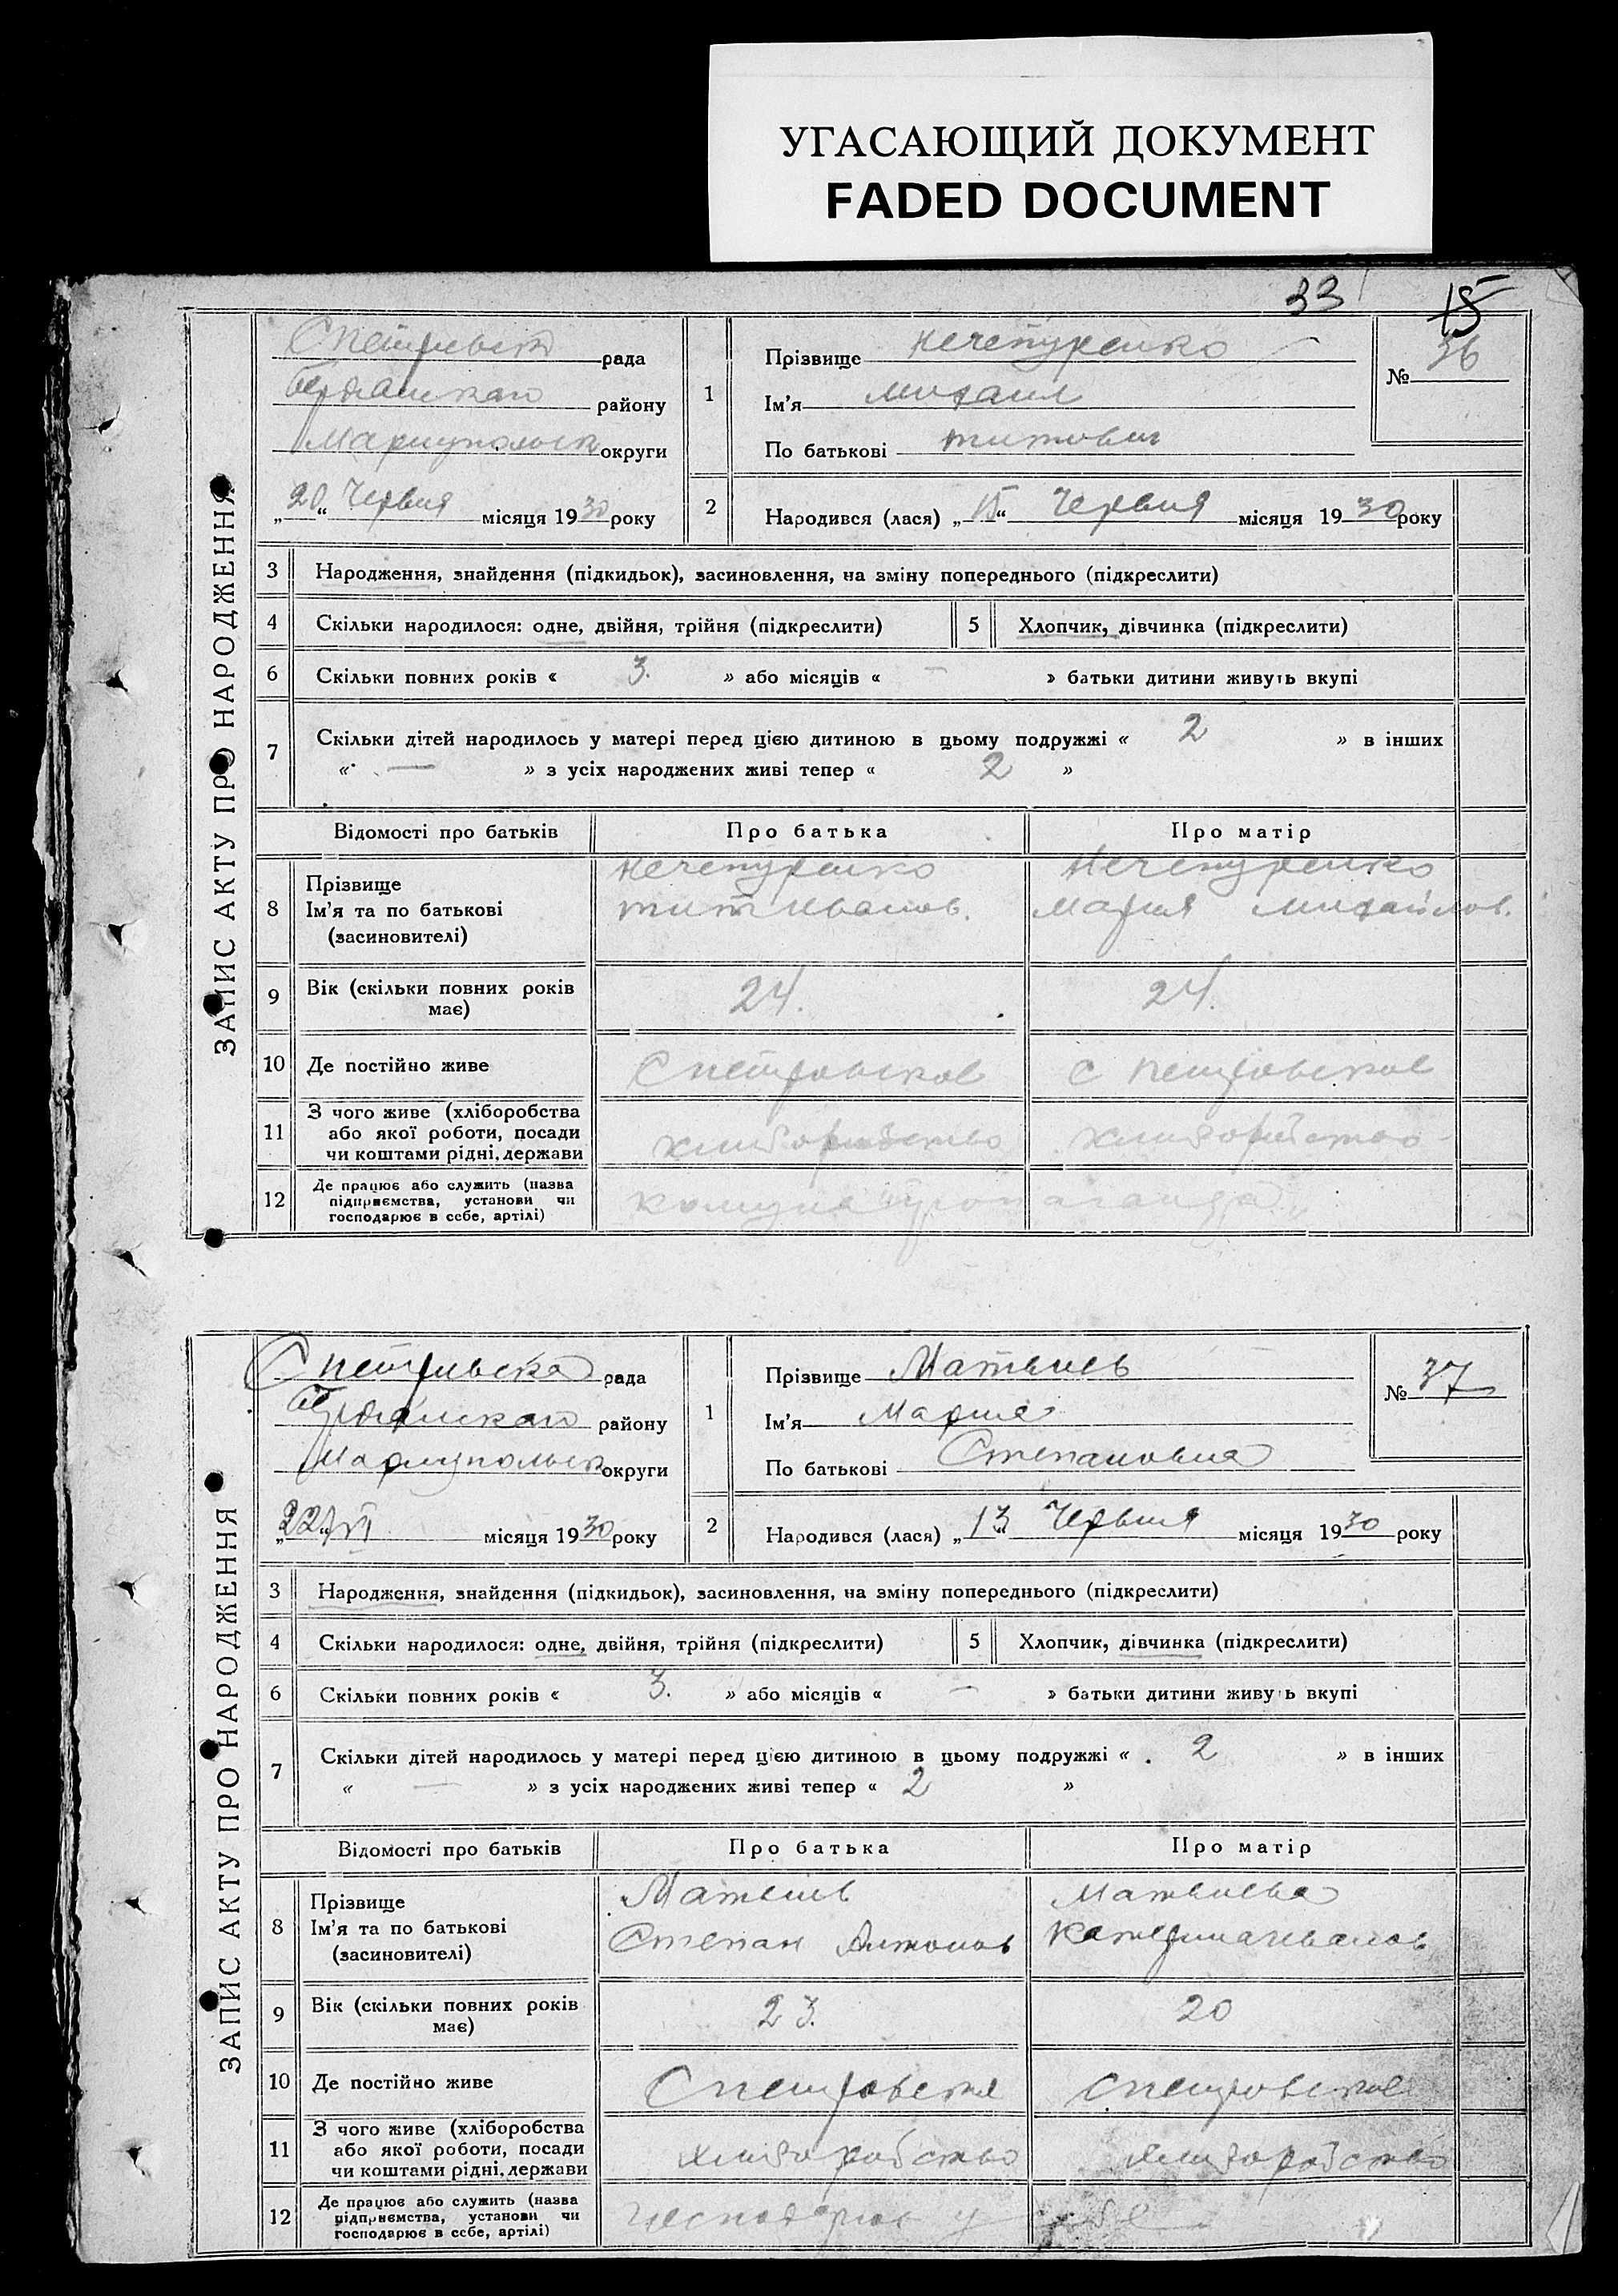 УГАСАЮЩИЙ ДОКУМЕНТ
FADED DOCUMENT
33 15
ЗАПИС АКТУ ПРО НАРОДЖЕННЯ
рада
району
Мариупольск округи
„20“ Червня місяця 1930 року
1
Прізвище Нечепуренко
Ім'я Михаил
По батькові Титович
№ 36
2
Народився (лася) „15“ Червня місяця 1930 року
3 Народження, знайдення (підкидьок), засиновлення, на зміну попереднього (підкреслити)
4 Скільки народилося: одне, двійня, трійня (підкреслити) 5 Хлопчик, дівчинка (підкреслити)
6 Скільки повних років « 3. » або місяців « — » батьки дитини живуть вкупі
7 Скільки дітей народилось у матері перед цією дитиною в цьому подружжі « 2 » в інших
« — » з усіх народжених живі тепер « 2 »
Відомості про батьків Про батька Про матір
8 Прізвище Нечепуренко Нечепуренко
Ім'я та по батькові Тит Иванов. Мария Михайлов.
(засиновителі)
9 Вік (скільки повних років має) 24. 24.
10 Де постійно живе С Петровское С Петровское
11 З чого живе (хліборобства
або якої роботи, посади
чи коштами рідні, держави хлиборобство хлиборобство
12 Де працює або служить (назва
підприємства, установи чи
господарює в себе, артілі) Комуна
ЗАПИС АКТУ ПРО НАРОДЖЕННЯ
С Петривска рада
району
Мариупольск округи
„22“ VI місяця 1930 року
1
Прізвище Матвиев
Ім'я Мария
По батькові Степановна
№ 37
2
Народився (лася) „13“ Червня місяця 1930 року
3 Народження, знайдення (підкидьок), засиновлення, на зміну попереднього (підкреслити)
4 Скільки народилося: одне, двійня, трійня (підкреслити) 5 Хлопчик, дівчинка (підкреслити)
6 Скільки повних років « 3. » або місяців « — » батьки дитини живуть вкупі
7 Скільки дітей народилось у матері перед цією дитиною в цьому подружжі « 2 » в інших
« — » з усіх народжених живі тепер « 2 »
Відомості про батьків Про батька Про матір
8 Прізвище Матвиев Матвиева
Ім'я та по батькові Степан Антонов Катерина Иванов
(засиновителі)
9 Вік (скільки повних років має) 23. 20
10 Де постійно живе С Петровске С Петровское
11 З чого живе (хліборобства
або якої роботи, посади
чи коштами рідні, держави хлиборобство хлиборобство
12 Де працює або служить (назва
підприємства, установи чи
господарює в себе, артілі) у себе